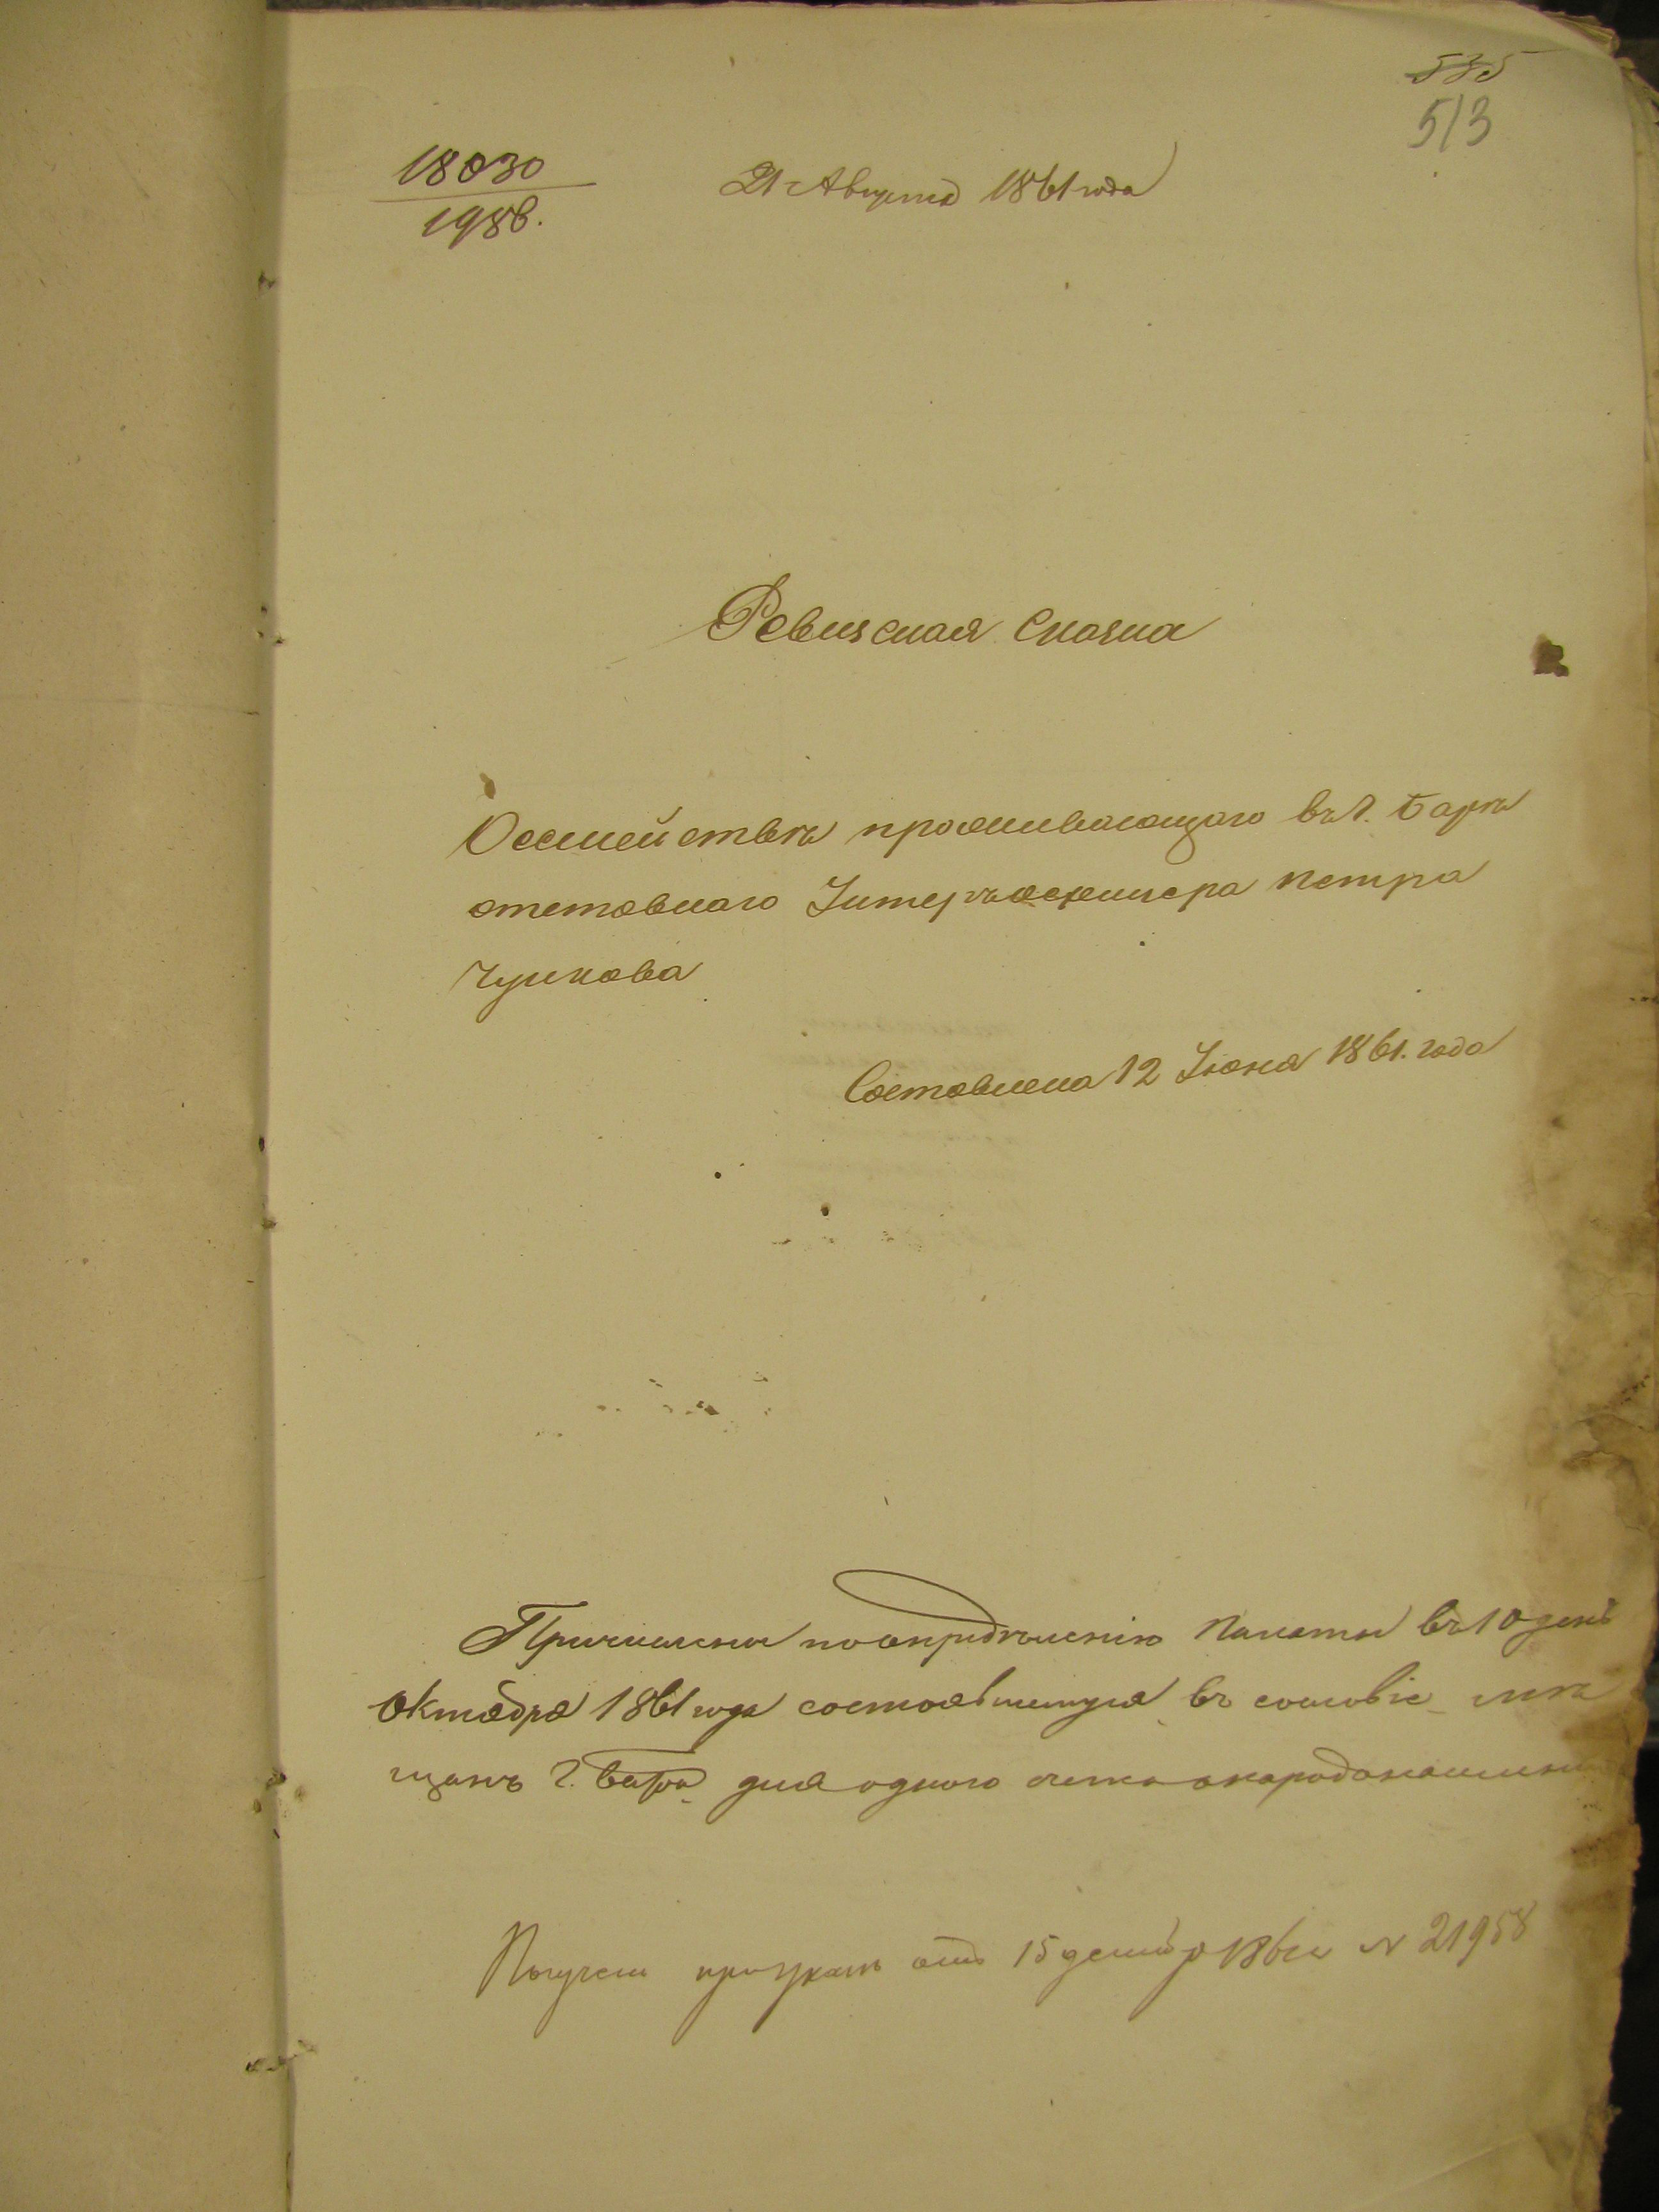 535
513
18030
1986.
21 Августа 1861 года
Ревизская Сказка
О семействѣ проживающаго въ г. Барѣ
отставнаго Унтеръ офицера Петра
Чумкова
Составлена 12 Іюня 1861. года
Причислены по опредѣленію Палаты въ 10 день
Октября 1861 года состоявшемуся въ сословіе мѣ
щанъ г. Бара для одного счета народонаселенія
Получен от 15 декабр 1861 № 21958